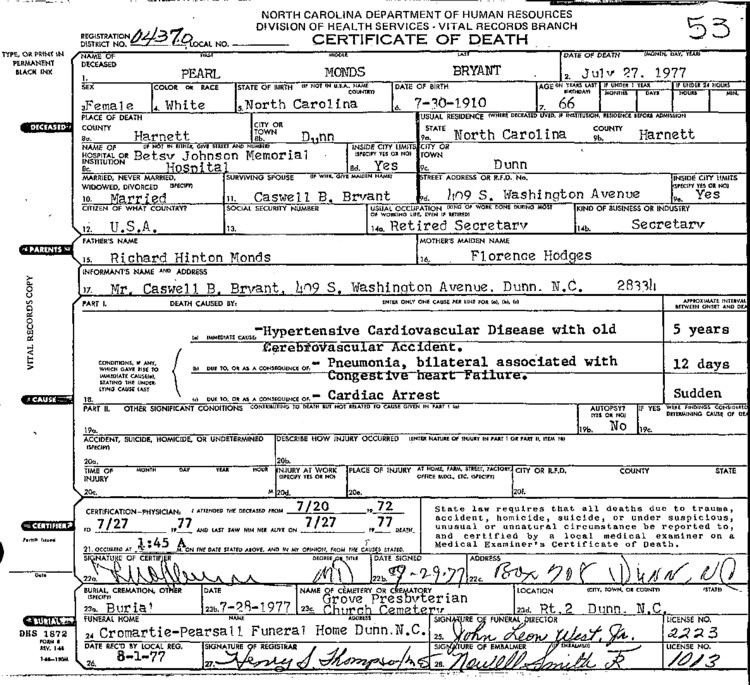 NORTH CAROLINA DEPARTMENT OF HUMAN RESOURCES
DIVISION OF HEALTH SERVICES - VITAL RECORDS BRANCH
CERTIFICATE OF DEATH
53
REGISTRATION DISTRICT NO. 04370 LOCAL NO.
TYPE, OR PRINT IN PERMANENT BLACK INK
NAME OF DECEASED FIRST MIDDLE LAST DATE OF DEATH (MONTH, DAY, YEAR)
1. PEARL MONDS BRYANT 2. July 27, 1977
SEX COLOR OR RACE STATE OF BIRTH (IF NOT IN U.S.A., NAME COUNTRY) DATE OF BIRTH AGE (IN YEARS LAST IF UNDER 1 YEAR IF UNDER 24 HOURS
MONTHS DAYS HOURS MIN.
3. Female 4. White 5. North Carolina 6. 7-30-1910 7. 66
DECEASED
PLACE OF DEATH USUAL RESIDENCE (WHERE DECEASED LIVED, IF INSTITUTION, RESIDENCE BEFORE ADMISSION)
COUNTY CITY OR TOWN STATE COUNTY
8a. Harnett 8b. Dunn 9a. North Carolina 9b. Harnett
NAME OF HOSPITAL OR INSTITUTION (IF NOT IN EITHER, GIVE STREET AND NUMBER) INSIDE CITY LIMITS (SPECIFY YES OR NO) CITY OR TOWN
8c. Betsy Johnson Memorial Hospital 8d. Yes 9c. Dunn
MARRIED, NEVER MARRIED, WIDOWED, DIVORCED (SPECIFY) SURVIVING SPOUSE (IF WIFE, GIVE MAIDEN NAME) STREET ADDRESS OR R.F.D. No. INSIDE CITY LIMITS (SPECIFY YES OR NO)
10. Married 11. Caswell B. Bryant 9d. 409 S. Washington Avenue 9e. Yes
CITIZEN OF WHAT COUNTRY? SOCIAL SECURITY NUMBER USUAL OCCUPATION (KIND OF WORK DONE DURING MOST OF WORKING LIFE, EVEN IF RETIRED) KIND OF BUSINESS OR INDUSTRY
12. U.S.A. 13. 14a. Retired Secretary 14b. Secretary
PARENTS
FATHER'S NAME MOTHER'S MAIDEN NAME
15. Richard Hinton Monds 16. Florence Hodges
INFORMANT'S NAME AND ADDRESS
17. Mr. Caswell B. Bryant, 409 S. Washington Avenue, Dunn, N.C. 28334
VITAL RECORDS COPY
PART I. DEATH CAUSED BY: ENTER ONLY ONE CAUSE PER LINE FOR (a), (b), (c) APPROXIMATE INTERVAL BETWEEN ONSET AND DEA
(a) IMMEDIATE CAUSE -Hypertensive Cardiovascular Disease with old 5 years
Cerebrovascular Accident.
CONDITIONS, IF ANY, WHICH GAVE RISE TO IMMEDIATE CAUSE(a), STATING THE UNDERLYING CAUSE LAST
(b) DUE TO, OR AS A CONSEQUENCE OF: - Pneumonia, bilateral associated with 12 days
Congestive heart Failure.
18. (c) DUE TO, OR AS A CONSEQUENCE OF: - Cardiac Arrest Sudden
CAUSE
PART II. OTHER SIGNIFICANT CONDITIONS CONTRIBUTING TO DEATH BUT NOT RELATED TO CAUSE GIVEN IN PART I (a) AUTOPSY? (YES OR NO) IF YES WERE FINDINGS CONSIDERED DETERMINING CAUSE OF DEA
19a. 19b. No 19c.
ACCIDENT, SUICIDE, HOMICIDE, OR UNDETERMINED (SPECIFY) DESCRIBE HOW INJURY OCCURRED (ENTER NATURE OF INJURY IN PART I OR PART II, ITEM 18)
20a. 20b.
TIME OF INJURY MONTH DAY YEAR HOUR INJURY AT WORK (SPECIFY YES OR NO) PLACE OF INJURY AT HOME, FARM, STREET, FACTORY, OFFICE BLDG., ETC. (SPECIFY) CITY OR R.F.D. COUNTY STATE
20c. M 20d. 20e. 20f.
CERTIFIER
CERTIFICATION-PHYSICIAN: I ATTENDED THE DECEASED FROM 7/20 72
TO 7/27 77 AND LAST SAW HIM HER ALIVE ON 7/27 77 DEATH.
21. OCCURRED AT 1:45 A M. ON THE DATE STATED ABOVE, AND IN MY OPINION, FROM THE CAUSES STATED.
State law requires that all deaths due to trauma,
accident, homicide, suicide, or under suspicious,
unusual or unnatural circumstance be reported to,
and certified by a local medical examiner on a
Medical Examiner's Certificate of Death.
Permit Issued
Date
SIGNATURE OF CERTIFIER DEGREE OR TITLE DATE SIGNED ADDRESS
22a. MD 22b. 7-29-77 22c. Box 708 DUNN, NC
BURIAL, CREMATION, OTHER (SPECIFY) DATE NAME OF CEMETERY OR CREMATORY LOCATION (CITY, TOWN, OR COUNTY) (STATE)
23a. Burial 23b. 7-28-1977 23c. Grove Presbyterian Church Cemetery 23d. Rt.2 Dunn, N.C.
BURIAL
FUNERAL HOME NAME ADDRESS SIGNATURE OF FUNERAL DIRECTOR LICENSE NO.
24. Cromartie-Pearsall Funeral Home Dunn.N.C. 25. John Leon West, Jr. 2223
DHS 1872
FORM 8
REV. 1-68
DATE REC'D BY LOCAL REG. SIGNATURE OF REGISTRAR SIGNATURE OF EMBALMER (IF EMBALMED) LICENSE NO.
26. 8-1-77 27. Henry S. Thompson 28. Newell Smith Jr. 1013